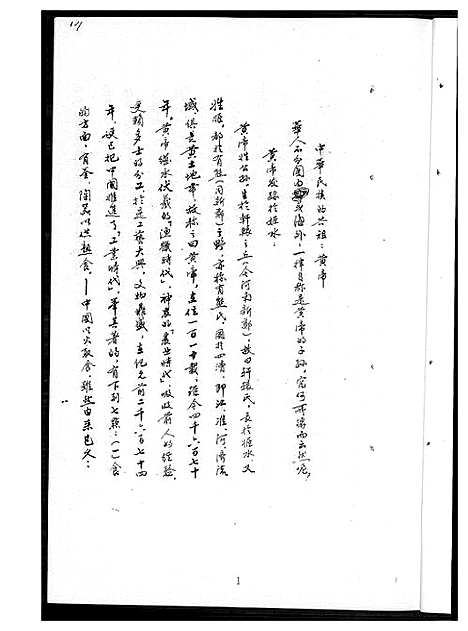 中華民族的共祖：黃帝
華人不分國內或海外，一律自稱是黃帝的子孫，究何所據而云然呢？
黃帝發跡於姬水：
黃帝姓公孫，生於軒轅之丘（今河南新鄭），故曰軒轅氏，長於姬水，又
姓姬，都於有熊（同新鄭）之野，亦稱有熊氏，國於四瀆，即江、淮、河、濟流
域，俱是黃土地帶，故稱之曰黃帝，在位一百一十載，距今四千六百七十
年。黃帝繼承伏羲的「漁獵時代」，神農的「農業時代」，吸收前人的經驗，
又賴多士的分工，於是工藝大興，文物鼎盛，在紀元前二千六百七十四
年，便已把中國推進了「工業時代」。犖其著的，有下列七類：（一）食
的方面，有釜、陶器以供熟食。—中國以火取食，雖然由來已久：
1